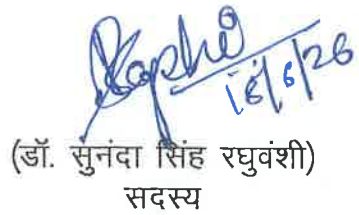 18/6/26
(डॉ. सुनंदा सिंह रघुवंशी)
सदस्य